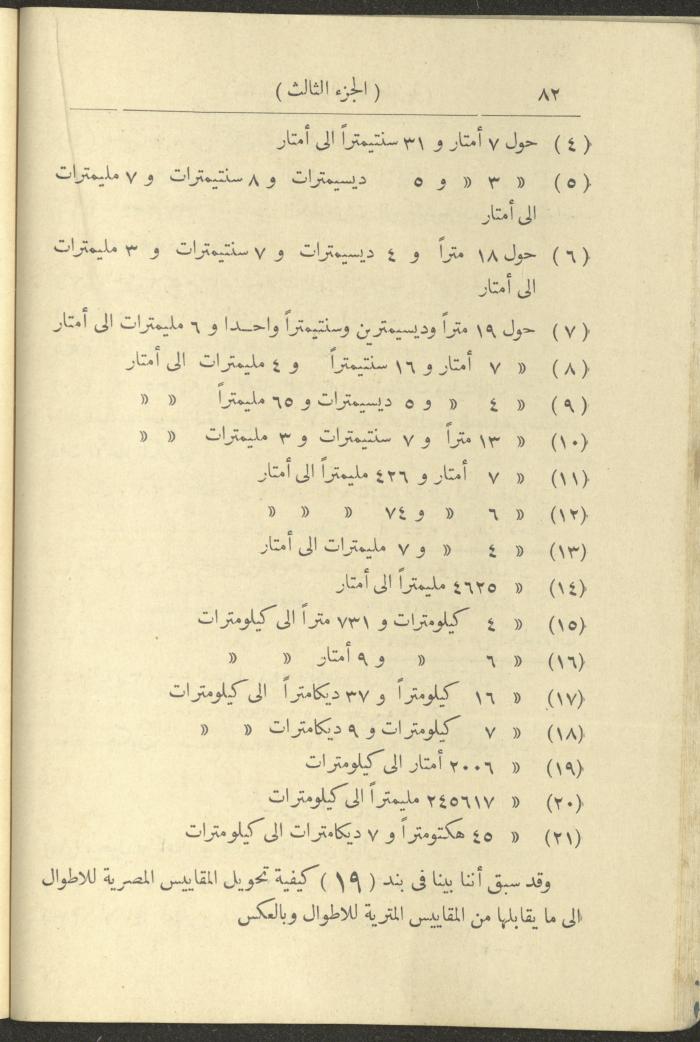 ٨٢ ( الجزء الثالث )
( ٤ ) حول ٧ أمتار و ٣١ سنتيمتراً الى أمتار
( ٥ ) » ٣ » و ٥ ديسيمترات و ٨ سنتيمترات و ٧ مليمترات
الى أمتار
( ٦ ) حول ١٨ متراً و ٤ ديسيمترات و ٧ سنتيمترات و ٣ مليمترات
الى أمتار
( ٧ ) حول ١٩ متراً وديسيمترين وسنتيمتراً واحدا و ٦ مليمترات الى أمتار
( ٨ ) » ٧ أمتار و ١٦ سنتيمتراً و ٤ مليمترات الى أمتار
( ٩ ) » ٤ » و ٥ ديسيمترات و ٦٥ مليمتراً » »
(١٠) » ١٣ متراً و ٧ سنتيمترات و ٣ مليمترات » »
(١١) » ٧ أمتار و ٤٢٦ مليمتراً الى أمتار
(١٢) » ٦ » و ٧٤ » » »
(١٣) » ٤ » و ٧ مليمترات الى أمتار
(١٤) » ٤٦٢٥ مليمتراً الى أمتار
(١٥) » ٤ كيلومترات و ٧٣١ متراً الى كيلومترات
(١٦) » ٦ » و ٩ أمتار » »
(١٧) » ١٦ كيلومتراً و ٣٧ ديكامتراً الى كيلومترات
(١٨) » ٧ كيلومترات و ٩ ديكامترات » »
(١٩) » ٢٠٠٦ أمتار الى كيلومترات
(٢٠) » ٢٤٥٦١٧ مليمتراً الى كيلومترات
(٢١) » ٤٥ هكتومتراً و ٧ ديكامترات الى كيلومترات
وقد سبق أننا بينا فى بند ( ١٩ ) كيفية تحويل المقاييس المصرية للاطوال
الى ما يقابلها من المقاييس المترية للاطوال وبالعكس